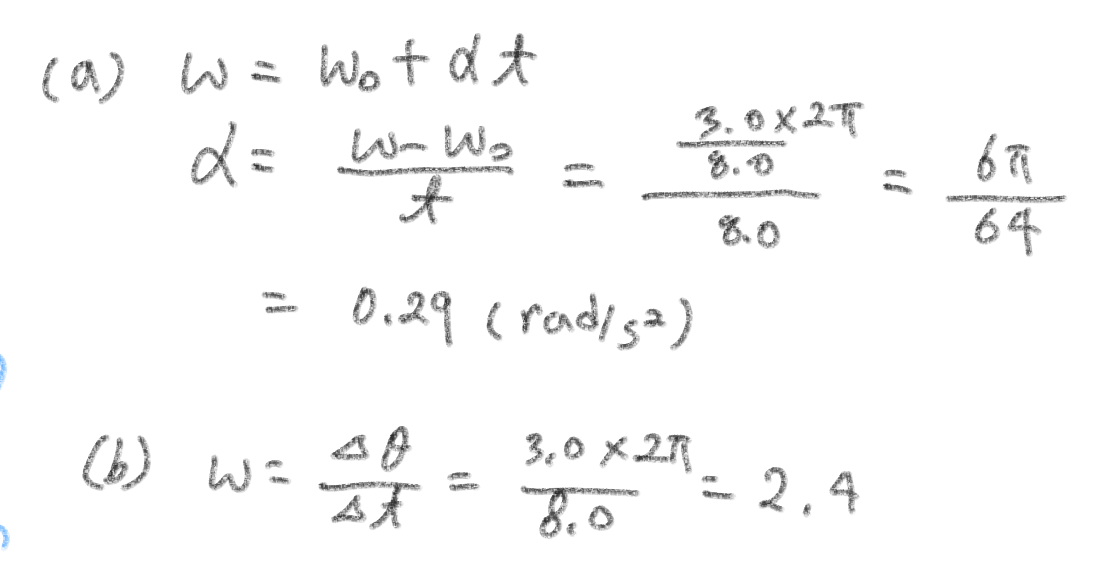 (a) ω = ω₀ + αt
α = (ω - ω₀)/t = ((3.0×2π)/8.0)/8.0 = 6π/64
= 0.29 (rad/s²)
(b) ω = Δθ/Δt = (3.0×2π)/8.0 = 2.4